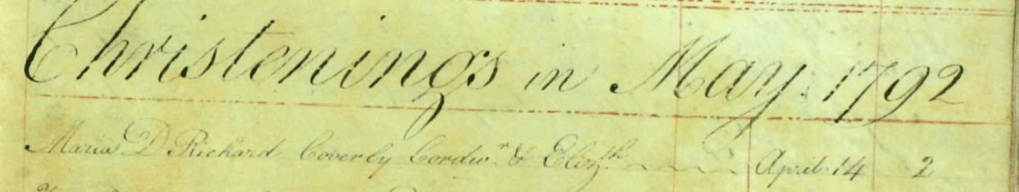 Christenings in May 1792
Maria D Richard Coverly Cordwr & Elizth April 14 2